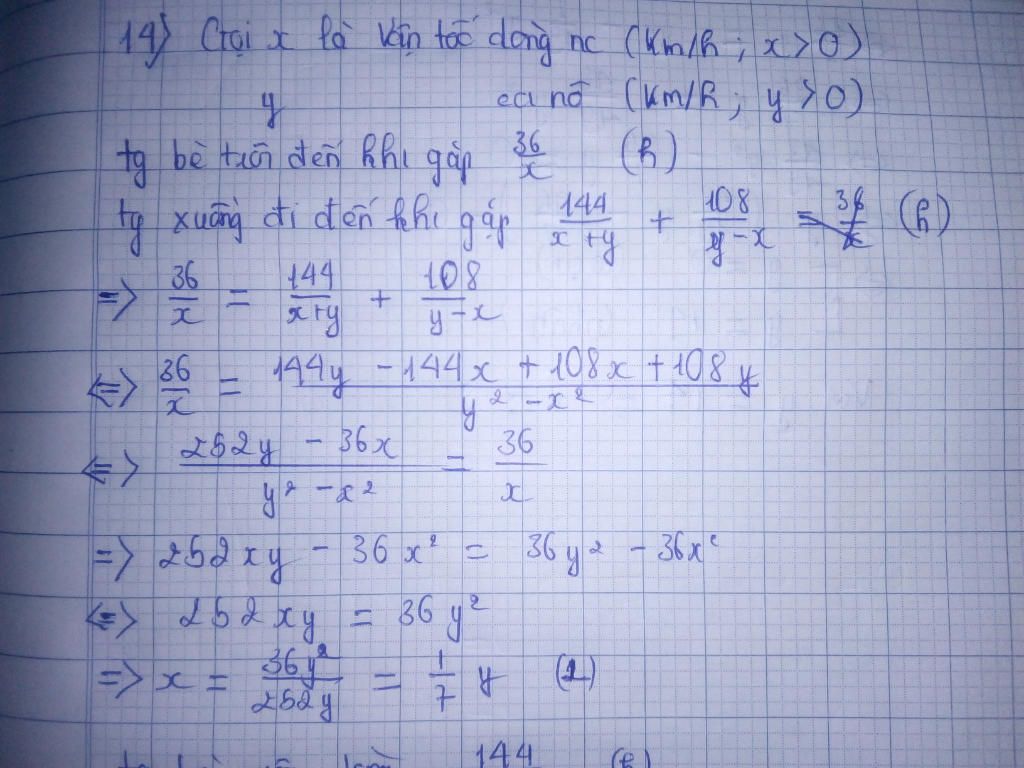 14) Gọi x là vận tốc dòng nc (km/h ; x > 0)
y ca nô (km/h ; y > 0)
tg bè trôi đến khi gặp 36/x (h)
tg xuồng đi đến khi gặp 144/(x+y) + 108/(y-x) = 36/x (h)
=> 36/x = 144/(x+y) + 108/(y-x)
<=> 36/x = (144y - 144x + 108x + 108y)/(y² - x²)
<=> (252y - 36x)/(y² - x²) = 36/x
=> 252xy - 36x² = 36y² - 36x²
<=> 252xy = 36y²
=> x = 36y²/252y = 1/7 y (1)
144 (h)